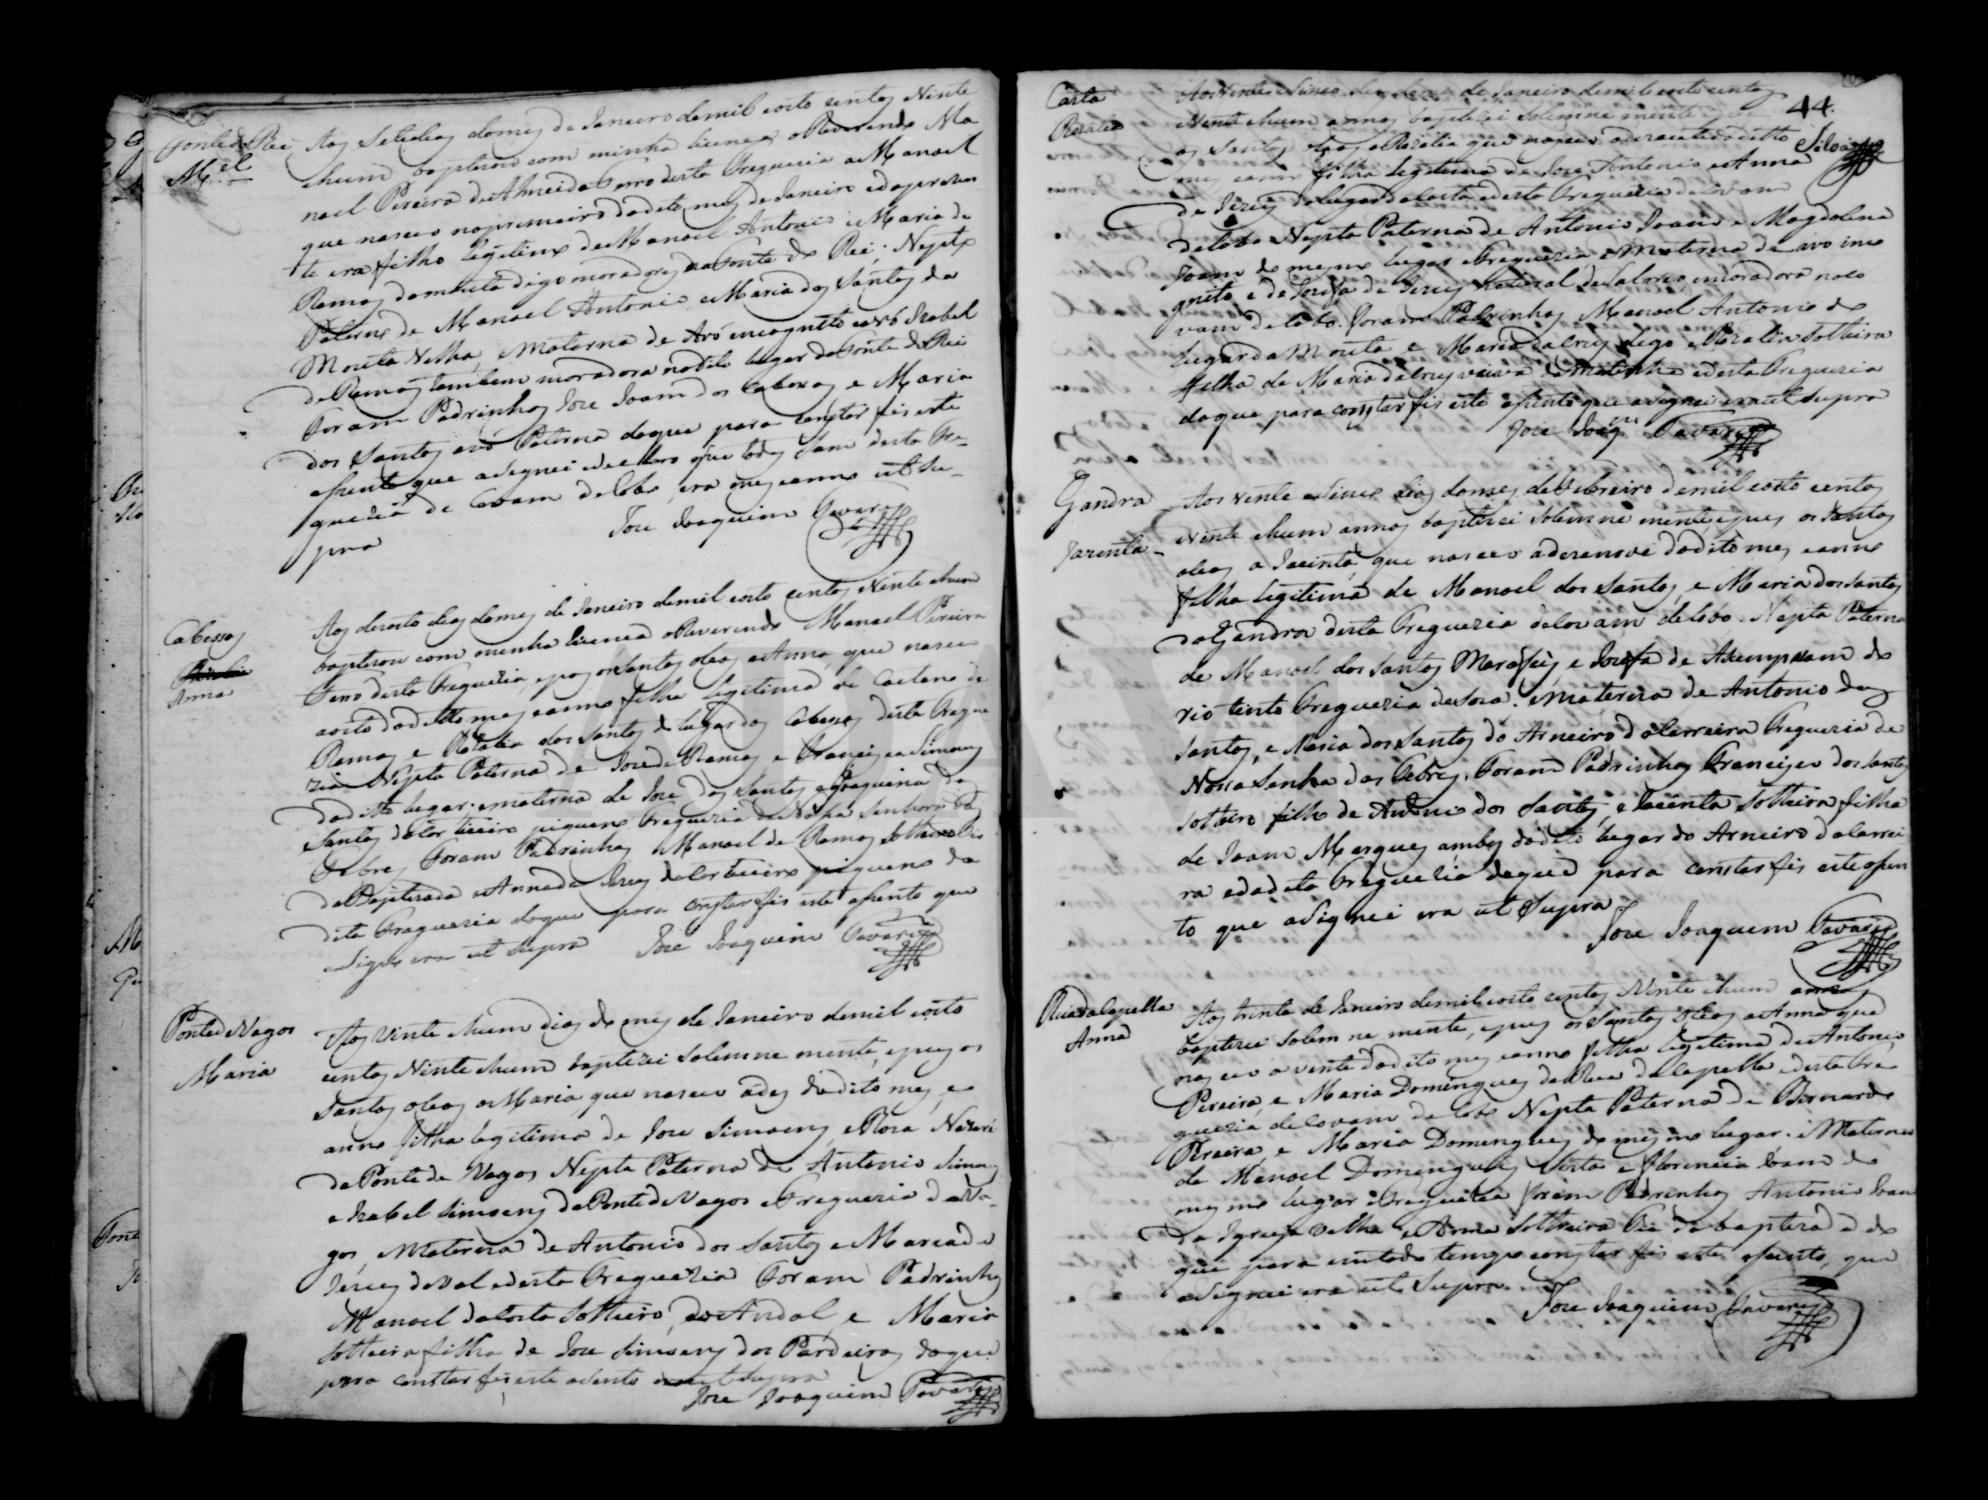 Fonte do Rei
M.el
Aos Sete dias do mes de Janeiro de mil oito centos Vinte
e hum baptizou com minha licença o Reverendo Ma
noel Pereira de Almeida Cura desta Freguezia a Manoel
que nasceo no primeiro do dito mes de Janeiro e do prezen
te era filho legitimo de Manoel Antonio e Maria de
Ramos da mouta digo moradores na Fonte do Rei; Nepto
Paterno de Manoel Antonio e Maria dos Santos da
Mouta Velha, e Materno de Avô incognito e avó Izabel
de Ramos tambem moradora no dito lugar da Fonte do Rei
Foram Padrinhos Joze Joam dos Cabesos e Maria
dos Santos avó Paterna do que para constar fis este
asento que asignei e declaro que todos sam desta Fre-
guezia de Covam do Lobo, era mes e anno ut Su-
pra
Joze Joaquim Tavares
Cabesos
Anna
Aos dezoito dias do mes de Janeiro de mil oito centos Vinte e hum
baptizou com minha licença o Reverendo Manoel Pereira
desta Freguezia, e pos os Santos oleos a Anna, que nasceo
a oito do dito mes e anno filha legitima de Caetano de
Ramos e Rozalia dos Santos do lugar dos Cabesos desta Fregue
zia Nepta Paterna de Joze de Ramos e Francisca Simoens
do dito lugar. e materna de Joze dos Santos e Joaquina dos
Santos da Corticeiro piqueno Freguezia de Nosa Senhora das
Febres Foram Padrinhos Manoel de Ramos Solteiro Tio
da Baptizada e Anna de Jezus da Corticeiro piqueno da
dita Freguezia do que para constar fis este asento que
asignei era ut supra Joze Joaquim Tavares
Ponte de Vagos
Maria
Aos Vinte e hum dias do mes de Janeiro de mil oito
centos Vinte e hum baptizei Solemne mente, e pus os
Santos oleos a Maria que nasceo a des do dito mes, e
anno filha legitima de Joze Simoens, e Roza Nazaré
da Ponte de Vagos Nepta Paterna de Antonio Simoens
e Izabel Simoens da Ponte de Vagos e Freguezia de Va-
gos, e Materna de Antonio dos Santos e Maria de
Jezus desta Freguezia Foram Padrinhos
Manoel da Costa Solteiro, do Andal, e Maria
Solteira filha de Joze Simoens dos Pardeiros, do que
para constar fis este asento ut supra
Joze Joaquim Tavares
44.
Silva
Costa
Rozalia
Aos Vinte e Sinco dias de Janeiro de mil e oito centos
e Vinte e hum annos baptizei Solemne mente e pus
os Santos oleos a Rozalia que nasceo a dezacete do ditto
mes e anno filha legitima de Joze Antonio e Anna
de Jezus do lugar da Costa e desta Freguezia de Covam
do lobo Nepta Paterna de Antonio Joam e Magdalena
Joam do mesmo lugar e Freguezia e Materna de avo inco
gnito e de Jozefa de Jezus Natural de Sabnes e moradora no co
vam do lobo. foram Padrinhos Manoel Antonio do
lugar da Mouta e Maria da Crus digo e Rozalia Solteira
filha de Maria da Crus viuva e desta Freguezia
do que para constar fis este asento que asignei era ut Supra
Joze Joaq.m Tavares
Gandra
Jacinta
Aos vinte e Sinco dias do mes de Febreiro de mil e oito centos
e vinte e hum annos baptizei Solemne mente e pus os Santos
oleos a Jacinta, que nasceo a dezanove do dito mes e anno
filha legitima de Manoel dos Santos, e Maria dos Santos
da Gandra desta Freguezia de Covam do lobo. Nepta Paterna
de Manoel dos Santos e Jozefa de Asumpsam do
rio tinto Freguezia de Soza. e Materna de Antonio dos
Santos, e Maria dos Santos do Arneiro da Carreira Freguezia de
Nosa Senha das Febres. Foram Padrinhos Francisco dos Santos
Solteiro filho de Antonio dos Santos, e Jacinta Solteira filha
de Joam Marques ambos do dito lugar do Arneiro da Carrei
ra e da dita Freguezia do que para constar fis este asen
to que asignei era ut Supra
Joze Joaquim Tavares
Rua da Capella
Anna
Aos trinta de Janeiro de mil e oito centos Vinte e hum annos
baptizei Solemne mente, e pus os Santos Oleos a Anna que
nasceo a vinte do dito mes e anno filha legitima de Antonio
Pereira, e Maria Domingues da Rua da Capella e desta Fre-
guezia de Covam do lobo Nepta Paterna de Bernardo
Pereira, e Maria Domingues do mesmo lugar. e Materna
de Manoel Domingues e Florencia Joam do
mesmo lugar e Freguezia foram Padrinhos Antonio Joam
da Igreja Velha e Anna Solteira Tia da baptizada do
que para em todo tempo constar fis este asento, que
asignei era ut Supra.
Joze Joaquim Tavares